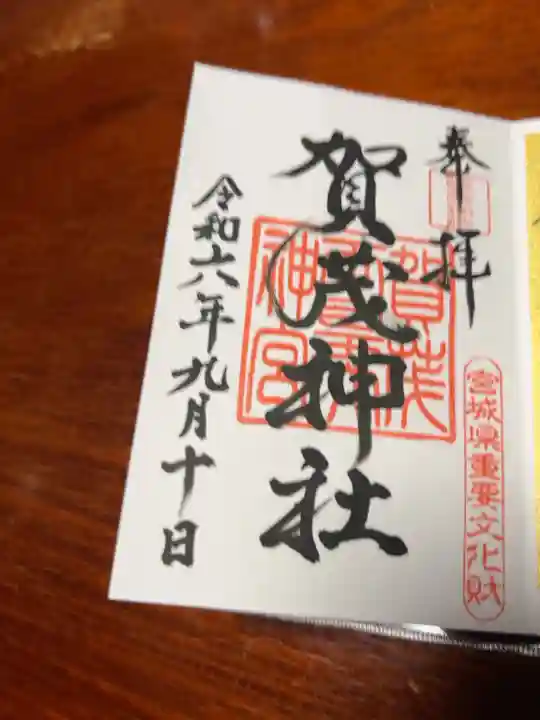 奉拝
宮城県重要文化財
賀茂神社
令和六年九月十日